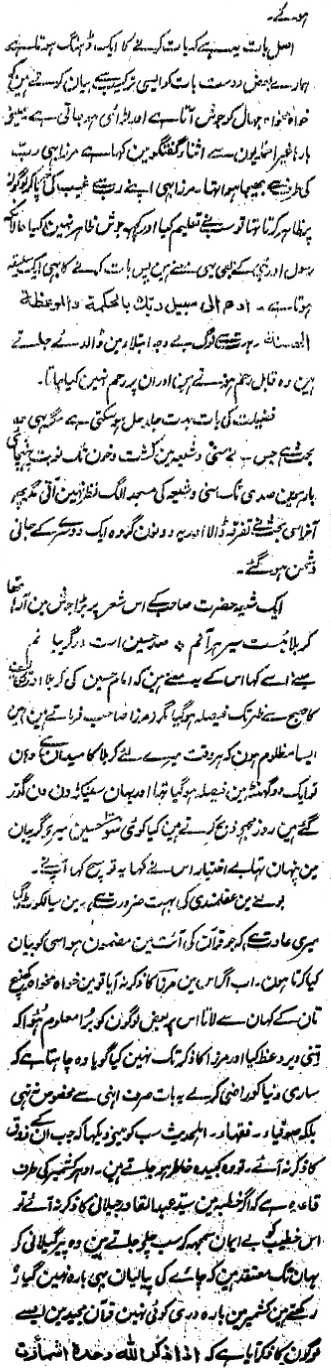 ہوئے۔
اصل بات یہ ہے کہ بات کرنے کا ایک ڈھنگ ہوتا ہے
ہمارے بعض دوست بات کو ایسی ترکیب سے بیان کرتے ہیں کہ
خواہ مخواہ جہال کو جوش آتا ہے اور لڑائی ہو جاتی ہے مینے
بارہا غیر احمدیوں سے اثناء گفتگو میں کہا ہے مرزا بھی رب
کی طرف سے بھیجا ہوا تھا۔ مرزا بھی اپنے رب سے غیب کی پا کر لوگوں
پر ظاہر کرتا تھا تو سب نے تسلیم کیا اور کچھ جوش ظاہر نہیں کیا حالانکہ
رسول اور نبی کے بھی یہی معنے ہیں پس بات کہنے کا بھی ایک سلیقہ
ہوتا ہے۔ ادع الی سبیل ربک بالحکمة والموعظة
الحسنة۔ بہت سے لوگ بے وجہ ابتلا میں ڈالے جاتے
ہیں وہ قابل رحم ہوتے ہیں اور ان پر رحم نہیں کیا جاتا۔
فضیلت کی بات بہت جلد حل ہو سکتی ہے مگر یہی وہ
بحث ہے جس نے سنی و شیعہ میں کشت و خون تک نوبت پہنچائی
بارہویں صدی تک سنی و شیعہ کی مسجد الگ نظر نہیں آتی مگر پھر
آخر اسی بحث نے تفرقہ ڈالا اور یہ دونوں گروہ ایک دوسرے کے جانی
دشمن ہو گئے۔
ایک شیعہ حضرت صاحب کے اس شعر پر بڑا جوش میں آ رہا تھا
کربلا ئیست سیر ہر آنم ٭ صد حسین است در گریبانم
مینے اسے کہا اس کے یہ معنے ہیں کہ امام حسین کی کربلا اور
کا صبح سے ظہر تک فیصلہ ہو گیا مگر مرزا صاحب فرماتے ہیں میں
ایسا مظلوم ہوں کہ ہر وقت میرے لئے کربلا کا میدان ہے وہاں
تو ایک دو گھنٹے میں فیصلہ ہو گیا تھا اور یہاں سینکڑوں دن گذر
گئے ہیں روز مجھے ذبح کرتے ہیں گویا کوئی سو حسین میرے گریبان
میں پنہاں تھا بے اختیار اس نے کہا یہ تو سچ کہا آپ نے۔
بولنے میں عقلمندی کی بہت ضرورت ہے، میں سیالکوٹ گیا
میری عادت ہے کہ جو قرآن کی آیت میں مضمون ہو اسی کو بیان
کیا کرتا ہوں۔ اب اگر اس میں مرزا کا ذکر نہ آیا تو میں خواہ مخواہ کھینچ
تان کے کہاں سے لاتا اس پر بعض لوگوں کو برا معلوم ہوا کہ
اتنی دیر وعظ کیا اور مرزا کا ذکر تک نہیں کیا گویا وہ چاہتا ہے کہ
ساری دنیا کو راضی کر لے یہ بات صرف انہی سے مخصوص نہیں
بلکہ صوفیاء۔ فقہاء۔ اہلحدیث سب کو مینے دیکھا کہ جب ان کے ذوق
کا ذکر نہ آئے۔ تو وہ کبیدہ خاطر ہو جاتے ہیں۔ ادھر کشمیر کی طرف
قاعدہ ہے کہ اگر خطبہ میں سید عبدالقادر جیلانی کا ذکر نہ آئے تو
اس خطیب کو بے ایمان سمجھ کر سب چلے جاتے ہیں وہ پیر گیلانی کے
یہاں تک معتقد ہیں کہ چائے کی پیالیاں بھی بارہ نہیں گیارہ
رکھتے ہیں کشمیر میں بارہ دری کوئی نہیں قرآن مجید میں ایسے
لوگوں کا ذکر آیا ہے کہ اذا ذکر اللہ وحدہ اشمأزت